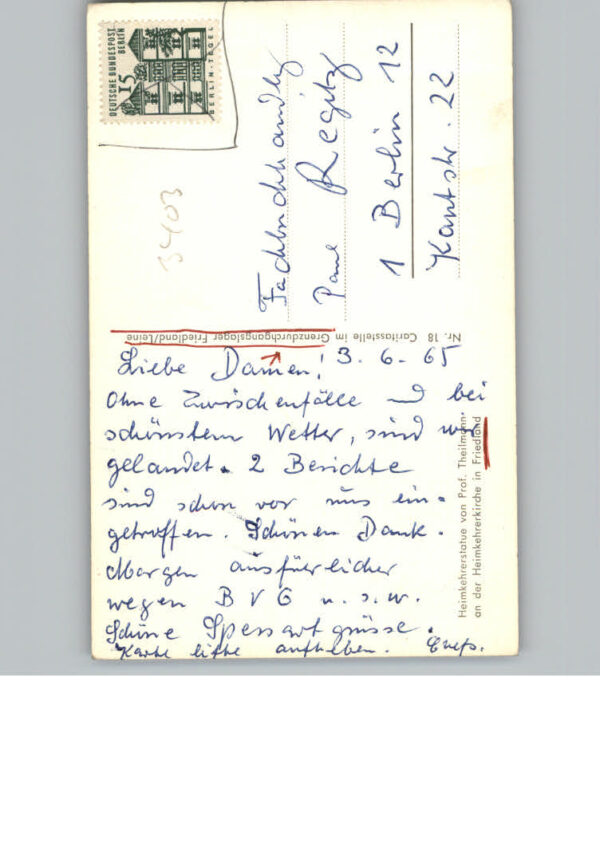 DEUTSCHE BUNDESPOST
BERLIN
15
BERLIN-TEGEL
3403
Fachbuchhandlg
Paul Regitz
1 Berlin 12
Kantstr. 22
Nr. 18 Caritasstelle im Grenzdurchgangslager Friedland/Leine
Liebe Damen! 3. 6. 65
Ohne Zwischenfälle und bei
schönstem Wetter, sind wir
gelandet. 2 Berichte
sind schon vor uns ein=
getroffen. Schönen Dank.
Morgen ausführlicher
wegen B V G u. s. w.
Schöne Spessartgrüsse.
Karte bitte aufheben.
Heimkehrerstatue von Prof. Theilmann
an der Heimkehrerkirche in Friedland